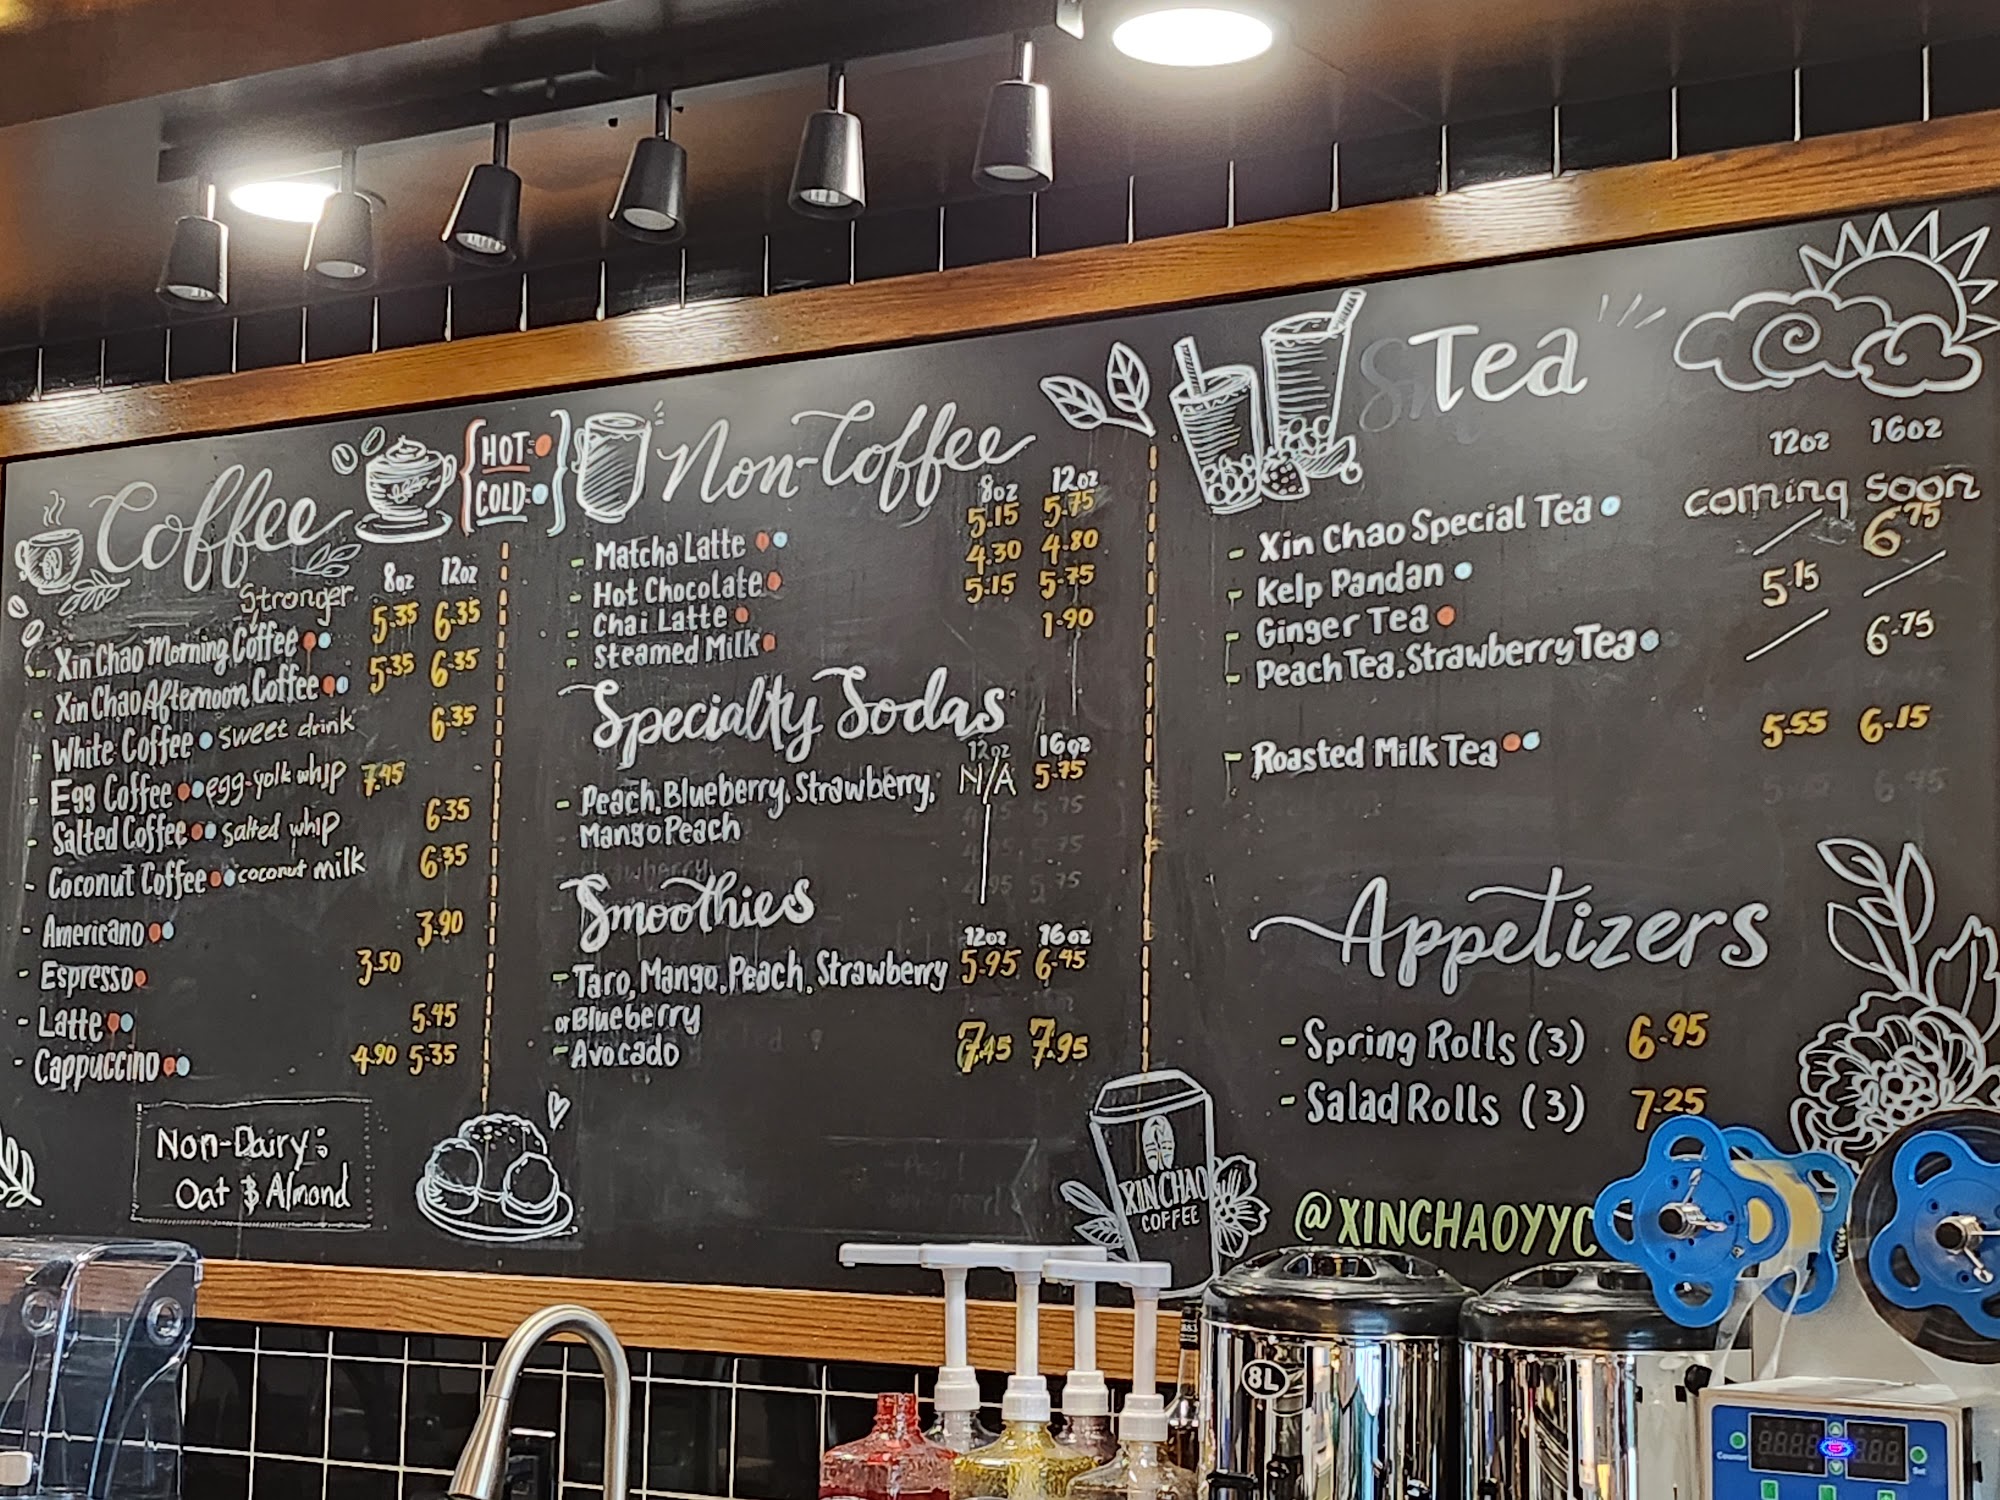 Coffee
HOT
COLD
8oz 12oz
Stronger
- Xin Chao Morning Coffee 5.35 6.35
- Xin Chao Afternoon Coffee 5.35 6.35
- White Coffee sweet drink 6.35
- Egg Coffee egg-yolk whip 7.45
- Salted Coffee salted whip 6.35
- Coconut Coffee coconut milk 6.35
- Americano 3.90
- Espresso 3.50
- Latte 5.45
- Cappuccino 4.90 5.35
Non-Dairy:
Oat & Almond
Non-Coffee
8oz 12oz
- Matcha Latte 5.15 5.75
- Hot Chocolate 4.30 4.80
- Chai Latte 5.15 5.75
- Steamed Milk 1.90
Specialty Sodas
12oz 16oz
- Peach, Blueberry, Strawberry, N/A 5.75
Mango Peach
Smoothies
12oz 16oz
- Taro, Mango, Peach, Strawberry 5.95 6.45
or Blueberry
- Avocado 7.45 7.95
XIN CHAO
COFFEE
Tea
12oz 16oz
- Xin Chao Special Tea coming soon
- Kelp Pandan / 6.75
- Ginger Tea 5.15 /
- Peach Tea, Strawberry Tea / 6.75
- Roasted Milk Tea 5.55 6.15
Appetizers
- Spring Rolls (3) 6.95
- Salad Rolls (3) 7.25
@XINCHAOYYC
8L